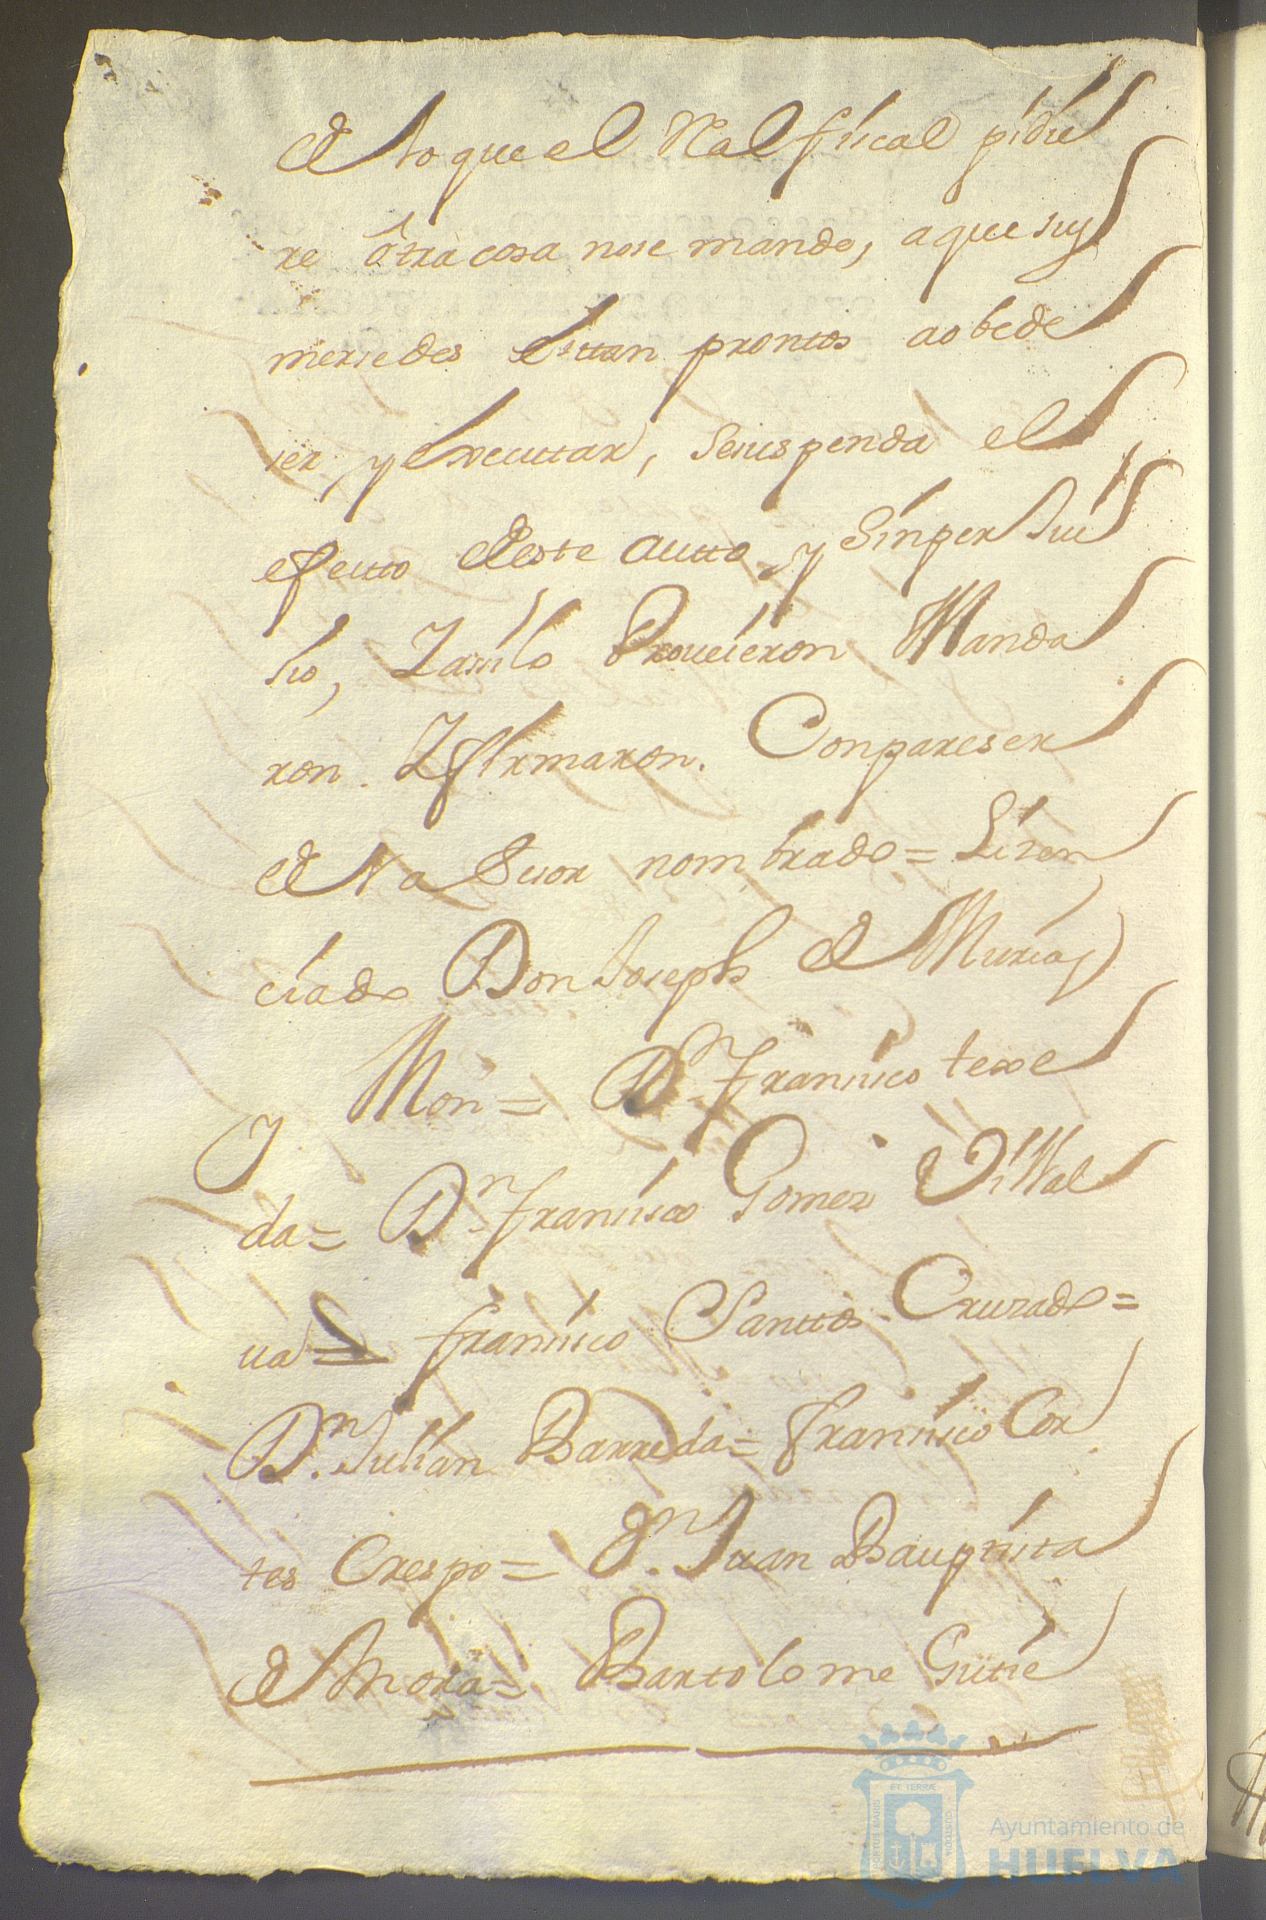 de lo que el Real fiscal pidie
re ôtra cosa no se mande, a que sus
mersedes esttan prontos ao bede
ser y executar, se suspenda el
efecto de este autto, y sin perJui
sio, Y asi lo Proveieron Manda
ron. Y firmaron. Con pareser
de el asesor nombrado = Lizen
ciado Don Joseph de Murias
y Mon = Dn. Francisco texe
da = Dn. Francisco Gomez Villal
va = francisco Santtos Cruzado =
Dn. Julian Barreda = francisco Cor
tes Crespo = Dn. Juan Bauptista
de Mora = Bartolome Gutie
ET TERRÆ
PORTUS MARIS
CUSTODIA
Ayuntamiento de
HUELVA